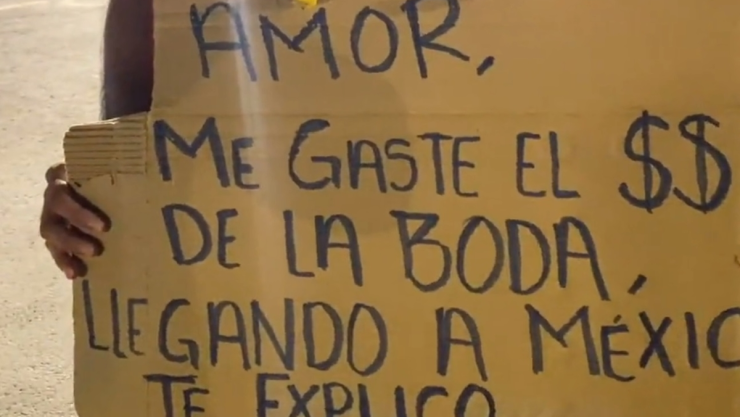 AMOR,
ME GASTE EL $$
DE LA BODA,
LLEGANDO A MÉXICO
TE EXPLICO